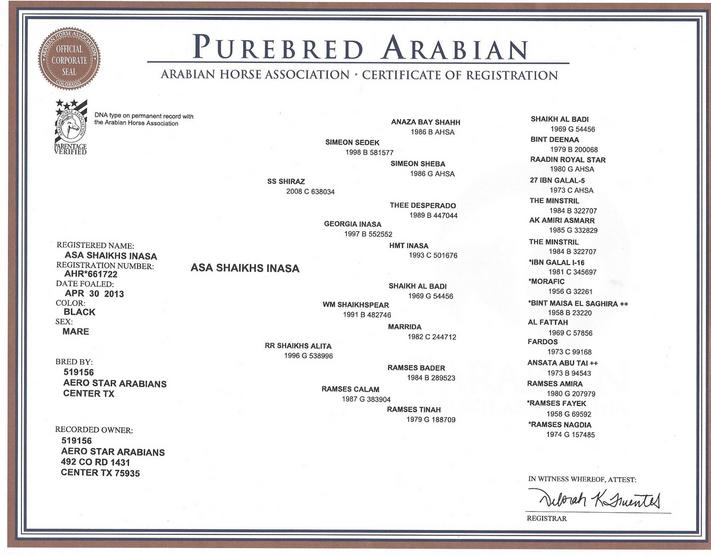 OFFICIAL
CORPORATE
SEAL
PUREBRED ARABIAN
ARABIAN HORSE ASSOCIATION · CERTIFICATE OF REGISTRATION
DNA type on permanent record with
the Arabian Horse Association
PARENTAGE
VERIFIED
REGISTERED NAME:
ASA SHAIKHS INASA
REGISTRATION NUMBER:
AHR*661722
DATE FOALED:
APR 30 2013
COLOR:
BLACK
SEX:
MARE
BRED BY:
519156
AERO STAR ARABIANS
CENTER TX
RECORDED OWNER:
519156
AERO STAR ARABIANS
492 CO RD 1431
CENTER TX 75935
ASA SHAIKHS INASA
SS SHIRAZ
2008 C 638034
RR SHAIKHS ALITA
1996 G 538996
SIMEON SEDEK
1998 B 581577
GEORGIA INASA
1997 B 552552
WM SHAIKHSPEAR
1991 B 482746
RAMSES CALAM
1987 G 383904
ANAZA BAY SHAHH
1986 B AHSA
SIMEON SHEBA
1986 G AHSA
THEE DESPERADO
1989 B 447044
HMT INASA
1993 C 501676
SHAIKH AL BADI
1969 G 54456
MARRIDA
1982 C 244712
RAMSES BADER
1984 B 289523
RAMSES TINAH
1979 G 188709
SHAIKH AL BADI
1969 G 54456
BINT DEENAA
1979 B 200068
RAADIN ROYAL STAR
1980 G AHSA
27 IBN GALAL-5
1973 C AHSA
THE MINSTRIL
1984 B 322707
AK AMIRI ASMARR
1985 G 332829
THE MINSTRIL
1984 B 322707
*IBN GALAL I-16
1981 C 345697
*MORAFIC
1956 G 32261
*BINT MAISA EL SAGHIRA ++
1958 B 23220
AL FATTAH
1969 C 57856
FARDOS
1973 C 99168
ANSATA ABU TAI ++
1973 B 94543
RAMSES AMIRA
1980 G 207979
*RAMSES FAYEK
1958 G 69592
*RAMSES NAGDIA
1974 G 157485
IN WITNESS WHEREOF, ATTEST:
Deborah K. Fuentes
REGISTRAR